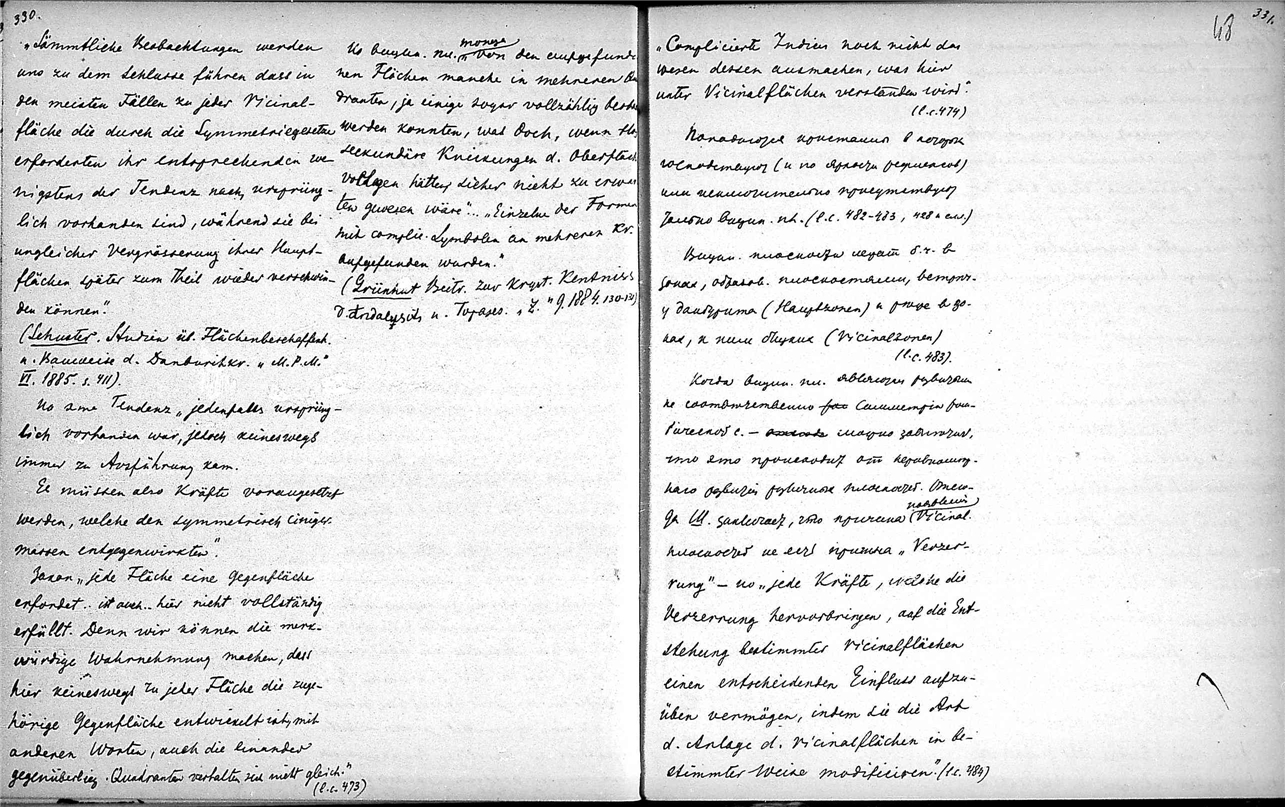 330.
„Sämmtliche Beobachtungen werden
uns zu dem Schlusse führen dass in
den meisten Fällen zu jeder Vicinal-
fläche die durch die Symmetriegesetze
erforderten ihr entsprechenden we-
nigstens der Tendenz nach, ursprüng-
lich vorhanden sind, während sie bei
ungleicher Vergrösserung ihrer Haupt-
flächen später zum Theil wieder verschwin-
den können".
(Schuster. Studien üb. Flächenbeschaffenh.
u. Bauweise d. Danburitkr. „M.P.M."
VI. 1885. s. 411).
Но эта Tendenz „jedenfalls ursprüng-
lich vorhanden war, jedoch keineswegs
immer zu Ausführung kam.
Es müssen also Kräfte vorausgesetzt
werden, welche den symmetrisch einiger-
massen entgegenwirkten".
Закон „jede Fläche eine Gegenfläche
erfordet.. ist auch.. hier nicht vollständig
erfüllt. Denn wir können die merk-
würdige Wahrnehmung machen, dass
hier keineswegs zu jeder Fläche die zuge-
hörige Gegenfläche entwickelt ist, mit
anderen Worten, auch die einander
gegenüberlieg. Quadranten verhalten sich nicht gleich."
(l.c. 473)
Но вицин. пл. „von den aufgefunde-
nen Flächen manche in mehreren
dranten, ja einige sogar vollzählig
werden konnten, was doch, wenn
secundäre Knickungen d.
hätten sicher nicht zu
ten gewesen wäre"... „Einzelne der Formen
mit complic. Symbolen an mehreren Kr.
aufgefunden wurden."
(Grünhut Beitr. zur Kryst. Kentniss
d. u. Topases. „Z." 9. 1884.
331.
48
„Complicierte Indices noch nicht das
wesen dessen ausmachen, was hier
unter Vicinalflächen verstanden wird".
(l.c. 474)
Попадаются кристаллы в которых
господствуют (и по яркости рефлексов)
или исключительно присутствуют
только вицин. пл. (l.c. 482-483, 428 и сл.)
Вицин. плоскости лежат б.ч. в
зонах, образов. плоскостями, встреч.
у данбурита (Hauptzonen) и реже в зо-
нах, к ним близких (Vicinalzonen)
(l.c. 483).
Когда вицин. пл. являются
не соответственно симметрии
с. – можно заметить,
что это происходит от неравномер-
наго развития плоскостей.
да Ш. заключает, что причина появления (Vicinal.
плоскостей не есть причина „Verzer-
rung" – но „jede Kräfte, welche die
Verzerrung hervorbringen, auf die Ent-
stehung bestimmter Vicinalflächen
einen entscheidenden Einfluss aufzu-
üben vermögen, indem sie die Art
d. Anlage d. Vicinalflächen in be-
stimmter Weise modificiren". (l.c. 484)